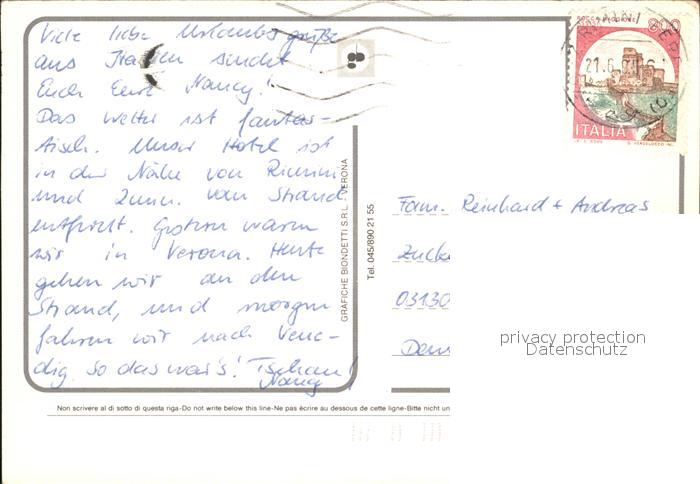 Viele liebe Urlaubsgrüße
aus Italien sindet
Euch Eure Nancy!
Das Wetter ist fantas-
tisch. Unser Hotel ist
in der Nähe von Rimini
und 2 min. vom Strand
entfernt. Gestern waren
wir in Verona. Heute
gehen wir an den
Strand, und morgen
fahren wir nach Vene-
dig. So das war's! Tschau!
Nancy
GRAFICHE BIONDETTI S.R.L. VERONA
Tel. 045/890 21 55
ITALIA
21.6
Fam. Reinhard + Andreas
Zucke
03130
privacy protection
Datenschutz
Non scrivere al di sotto di questa riga-Do not write below this line-Ne pas écrire au dessous de cette ligne-Bitte nicht un